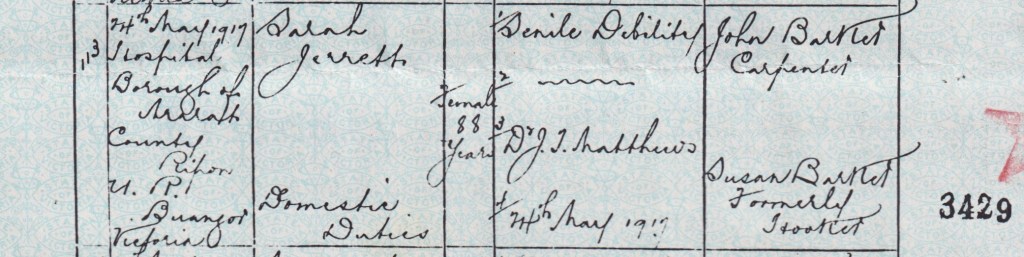 113
24th May 1917
Hospital
Borough of
Ararat
County
Ripon
U. R.
Buangor
Victoria
Sarah
Jerrett
Domestic
Duties
Female
88
Years
1 Senile Debility
2
3 Dr J. T. Matthews
4 24th May 1917
John Barker
Carpenter
Susan Barker
Formerly
Hooker
3429